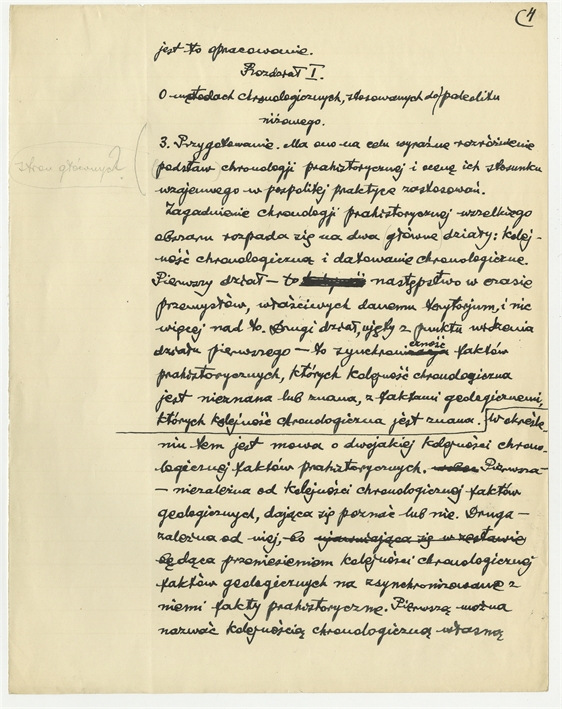 4
jest to opracowanie.
Rozdział I.
O metodach chronologicznych, stosowanych do paleolitu
niżowego.
3. Przygotowanie. Ma ono na celu wyraźne rozróżnienie
podstaw chronologji prahistorycznej i ocenę ich stosunku
wzajemnego w pospolitej praktyce zastosowań.
stron głównych?
Zagadnienie chronologji prahistorycznej wszelkiego
obszaru rozpada się na dwa główne działy: kolej-
ność chronologiczną i datowanie chronologiczne.
Pierwszy dział — to następstwo w czasie
przemysłów, właściwych danemu terytorjum, i nic
więcej nad to. Drugi dział, ujęty z punktu widzenia
działu pierwszego — to synchroniczność faktów
prahistorycznych, których kolejność chronologiczna
jest nieznana lub znana, z faktami geologicznemi,
których kolejność chronologiczna jest znana. W określe-
niu tem jest mowa o dwojakiej kolejności chrono-
logicznej faktów prahistorycznych. Pierwsza —
— niezależna od kolejności chronologicznej faktów
geologicznych, dająca się poznać lub nie. Druga —
zależna od niej, bo ujawniająca się w zestawie
będąca przeniesieniem kolejności chronologicznej
faktów geologicznych na zsynchronizowane z
niemi fakty prahistoryczne. Pierwszą można
nazwać kolejnością chronologiczną własną